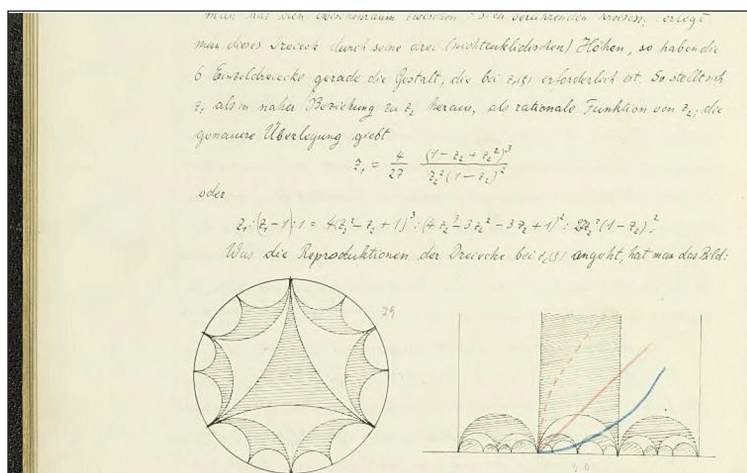 man hat den Zwischenraum zwischen 3 sich berührenden Kreisen. Zerlegt
man dieses Dreieck durch seine drei (nichteuklidischen) Höhen, so haben die
6 Einzeldreiecke gerade die Gestalt, die bei z₁(ς) erforderlich ist. So stellt sich
z₁ als in naher Beziehung zu z₂ heraus, als rationale Funktion von z₂; die
genauere Überlegung giebt
z₁ = 4/27 (1-z₂+z₂²)³/z₂²(1-z₂)²
oder
z₁:(z₁-1):1 = 4(z₂²-z₂+1)³:(4z₂³-3z₂²-3z₂+1)²:27z₂²(1-z₂)².
Was die Reproduktionen der Dreiecke bei z₂(ς) angeht, hat man das Bild:
29